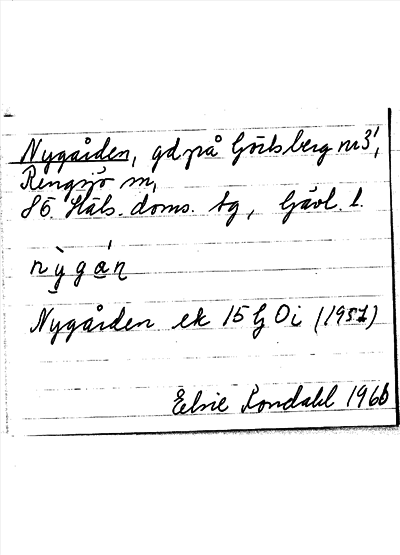 Nygården, gd på Görtsberg nr 3,
Rengsjö sn,
Sö. Häls. doms. tg, Gävl. l.
nỳgán̥
Nygården ek 15 G Oi (1957)
Elsie Rondahl 1966